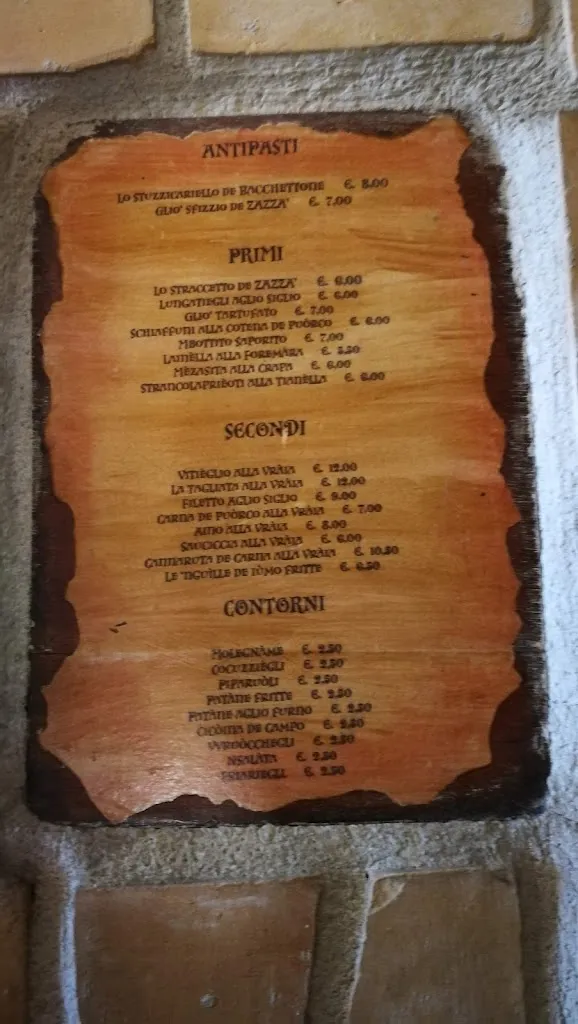 ANTIPASTI
LO STUZZICARIELLO DE BACCHETTONE €. 8.00
GLIO' SFIZZIO DE ZAZZA' €. 7.00
PRIMI
LO STRACCETTO DE ZAZZA' €. 6.00
LUNGATIEGLI AGLIO SIGLIO €. 6.00
GLIO' TARTUFATO €. 7.00
SCHIAFFUNI ALLA COTENA DE PUÒRCO €. 6.00
MBOTTITO SAPORITO €. 7.00
LAINÈLLA ALLA FOREMÀRA €. 5.50
MEZASITA ALLA CRAPA €. 6.00
STRANCOLAPRIBOTI ALLA TIANÈLLA €. 6.00
SECONDI
VITIEGLIO ALLA VRÀIA €. 12.00
LA TAGLIATA ALLA VRÀIA €. 12.00
FILETTO AGLIO SIGLIO €. 9.00
CARNA DE PUÒRCO ALLA VRÀIA €. 7.00
AINO ALLA VRÀIA €. 8.00
SAUCICCIA ALLA VRÀIA €. 6.00
CANNARUTA DE CARNA ALLA VRÀIA €. 10.50
LE 'NGUÌLLE DE IÙMO FRITTE €. 6.50
CONTORNI
MOLEGNÀME €. 2.50
COCUZZIEGLI €. 2.50
PIPARUÒLI €. 2.50
PATÀNE FRITTE €. 2.50
PATÀNE AGLIO FURNO €. 2.50
CICÒRIA DE CAMPO €. 2.50
VVRUÒCCHEGLI €. 2.50
NSALÀTA €. 2.50
€. 2.50